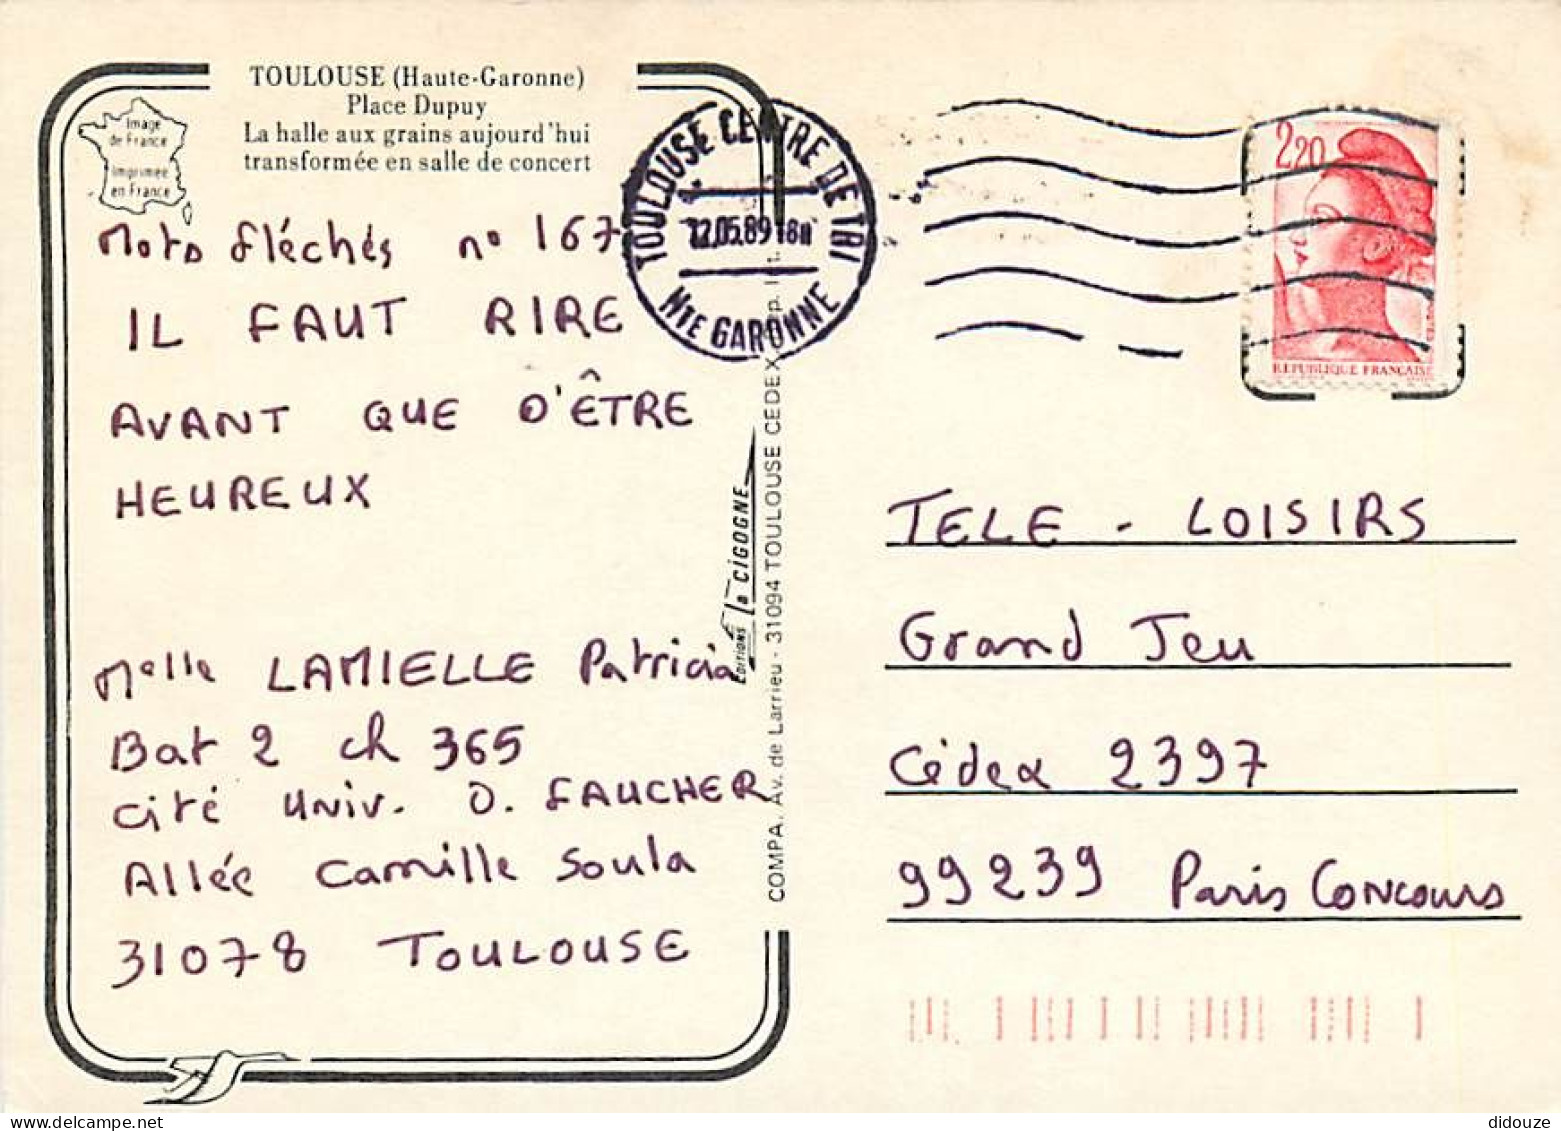 TOULOUSE (Haute-Garonne)
Place Dupuy
La halle aux grains aujourd'hui
transformée en salle de concert
Image
de France
Imprimée
en France
Mots fléchés n° 167
IL FAUT RIRE
AVANT QUE D'ÊTRE
HEUREUX
Melle LAMIELLE Patricia
Bat 2 ch 365
Cité Univ. D. FAUCHER
Allée Camille Soula
31078 TOULOUSE
TOULOUSE CENTRE DE TRI
12.05.89 18H
HTE GARONNE
EDITIONS La CIGOGNE
COMPA. Av. de Larrieu - 31094 TOULOUSE CEDEX
2,20
REPUBLIQUE FRANÇAISE
TELE - LOISIRS
Grand Jeu
Cédex 2397
99239 Paris Concours
didouze